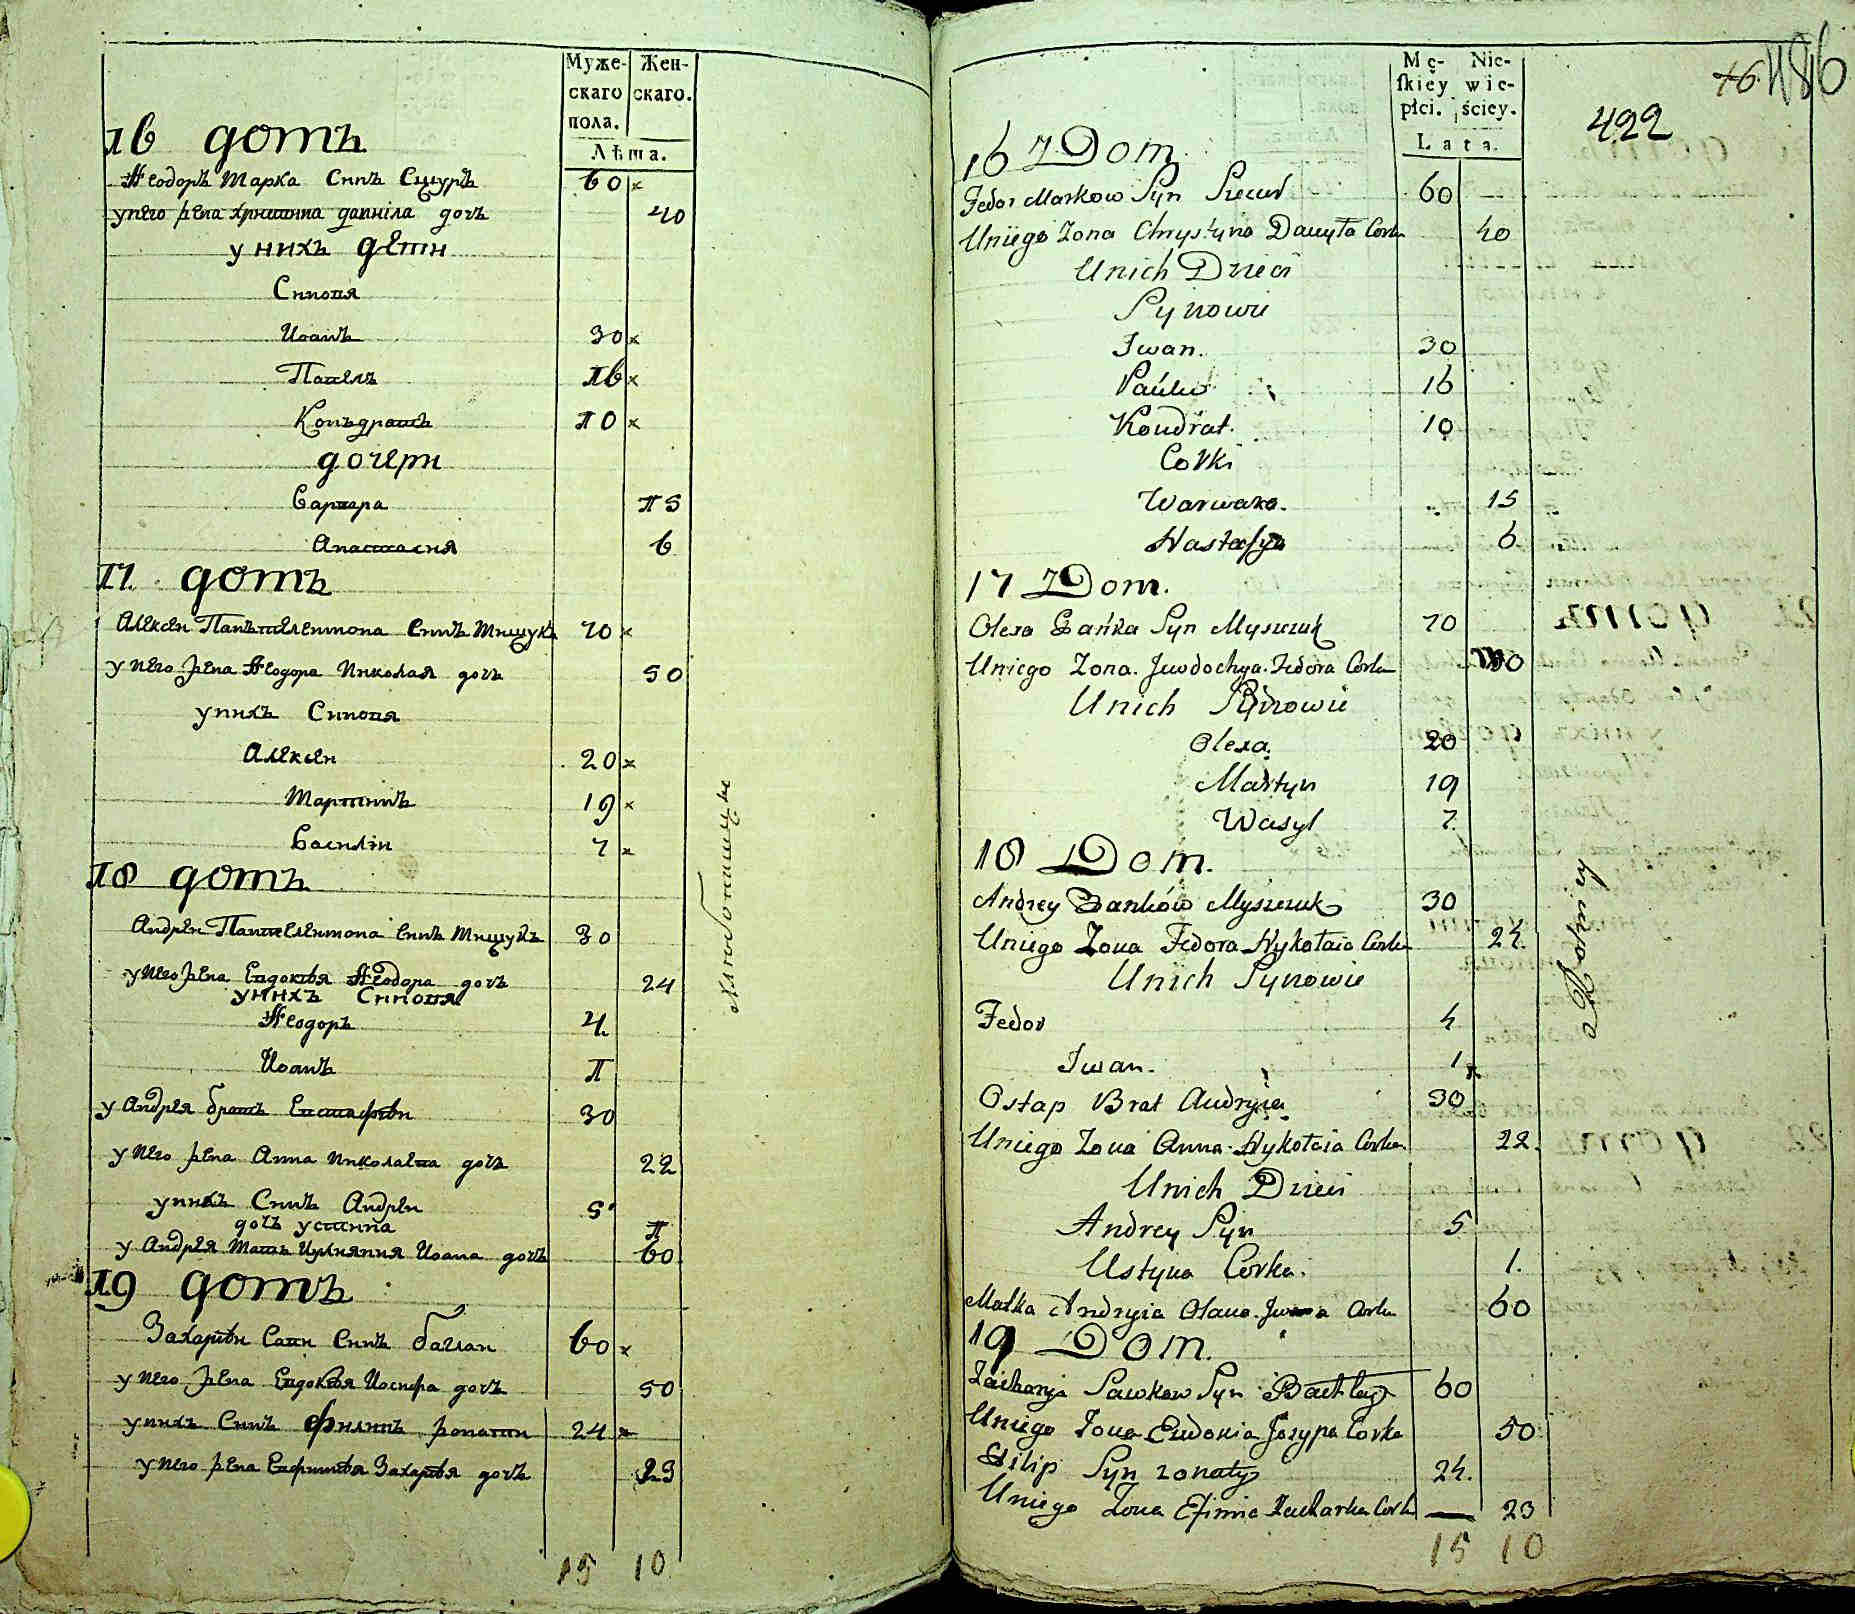 Муже- Жен-
скаго скаго.
пола.
Лѣта.
16 домъ
Ѳеодоръ Марка Синъ Сщуръ 60 ×
у него жена Христина данніла дочъ 40
у нихъ дети
Синовя
Иоанъ 30 ×
Павелъ 16 ×
Конъдратъ 10 ×
дочери
Варвара 15
Анастасия 6
17 домъ
Алексей Панътелеимона синъ Мищукъ 70 ×
у него жена Ѳеодора Николая дочъ 50
у нихъ Синовя
Алексей 20 ×
Мартинъ 19 ×
Василій 7 ×
18 домъ
Андрей Пантелеимона синъ Мищукъ 30
у него жена Евдокія Ѳеодора дочъ 24
у нихъ Синовя
Ѳеодоръ 4.
Иоанъ 1
у Андрея братъ Евстафій 30
у него жена Анна Николаева дочъ 22
у нихъ Синъ Андрей 5
дочъ устина 1
у Андрея Мать Иоана дочъ 60
19 домъ
Захарій Сави Синъ бачлай 60 ×
у него жена Евдокія Иосифа дочъ 50
у нихъ Синъ Филипъ жонатій 24 ×
у него жена Евфимія Захарія дочъ 23
15 10
Люботинцы
Mę- Nie-
skiey wie-
płci. ściey.
Lata.
76. 486
422
16 Dom
Fedor Markow Syn Szczur 60
Uniego Zona Chrystyna Danyła Corka 40
Unich Dzieci
Synowie
Iwan. 30
Pawło 16
Kondrat. 10
Corki
Warwara. 15
Nastasya 6
17 Dom.
Olexa Pańka Syn Myszczuk 70
Uniego Zona. Jewdochya. Fedora Corka 50
Unich Synowie
Olexa. 20
Martyn 19
Wasyl 7.
18 Dom.
Andrey Pańków Myszczuk 30
Uniego Zona Fedora Nykołaia Corka 24.
Unich Synowie
Fedor 4
Iwan. 1
Ostap Brat Andryia 30
Uniego Zona Anna Nykołaia Corka 22.
Unich Dzieci
Andrey Syn 5
Ustyna Corka. 1.
Matka Andryia Iwana Corka 60
19 Dom.
Zacharya Sawkow Syn Bachłay 60
Uniego Zona Eudokia Jozypa Corka 50
Filip Syn zonaty 24.
Uniego Zona Efimia Zacharka Corka — 23
15 10